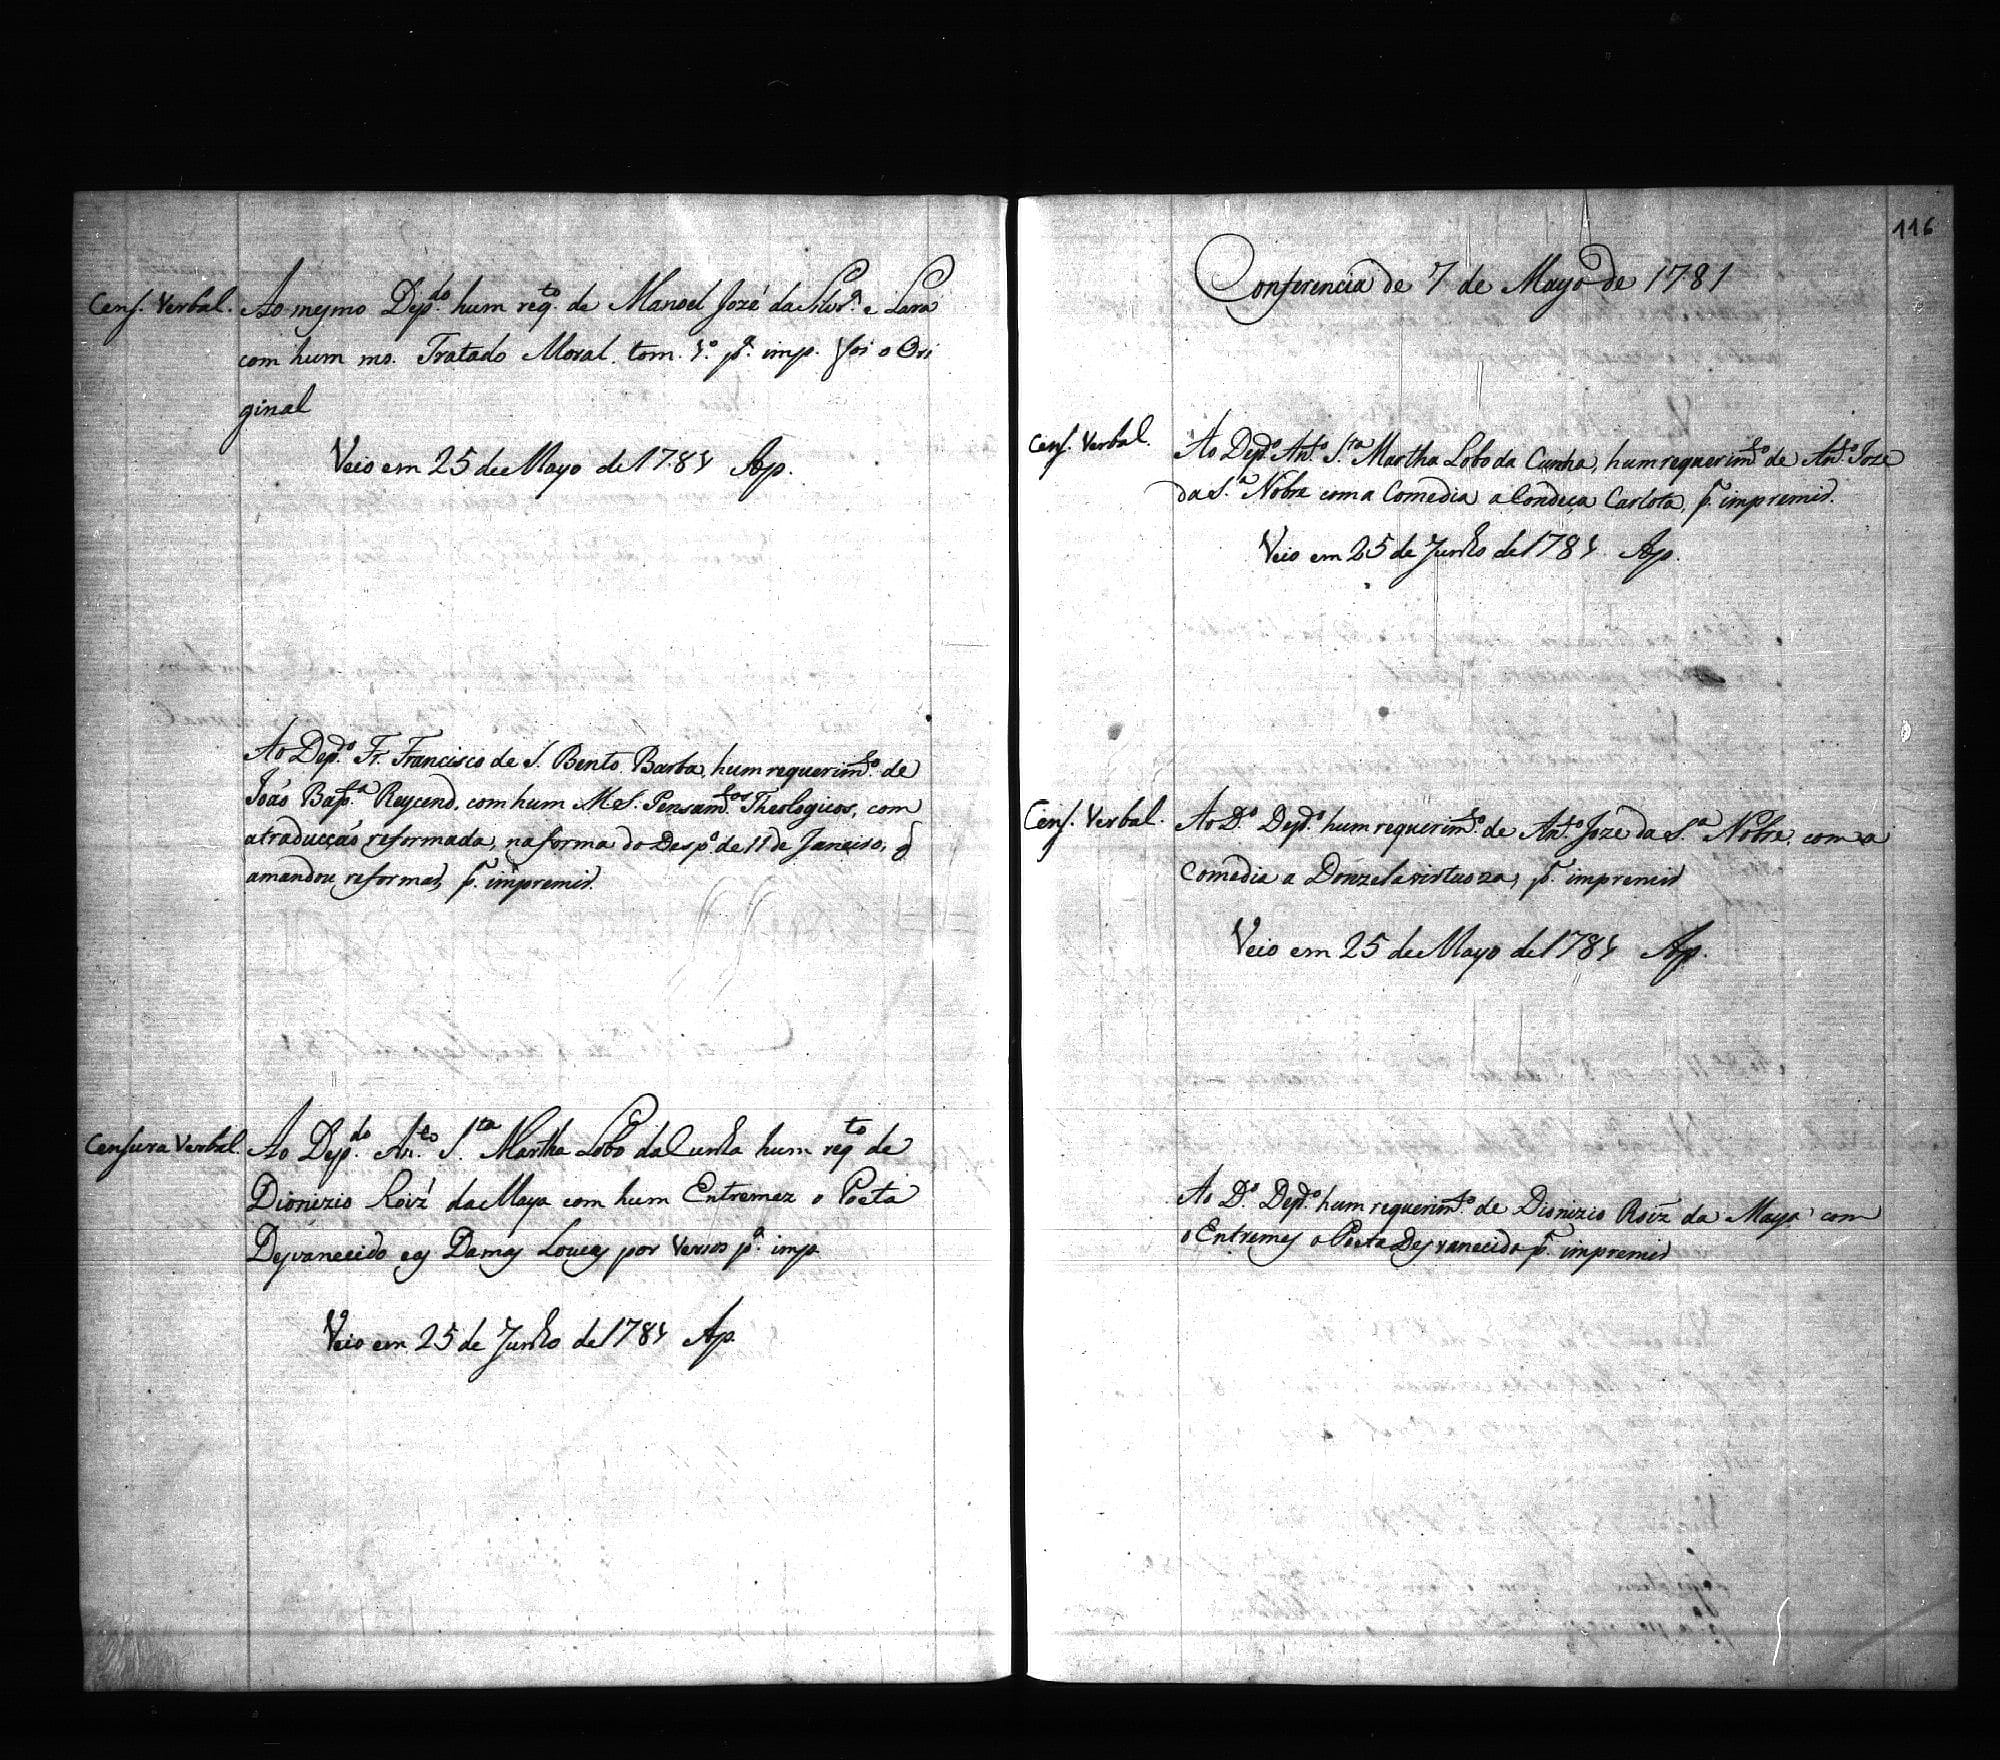 Cens. Verbal. Ao mesmo Dep.do hum req.to de Manoel Jozé da Silvr.a e Lara
com hum ms. Tratado Moral. tom. 1.º p.ª imp. foi o Ori
ginal
Veio em 25 de Mayo de 1781 Ap.
Ao Dep.do Fr. Francisco de S. Bento Barba, hum requerim.to de
João Bap.ta Reycend, com hum M.S. Pensam.tos Theologicos, com
a traducção reformada, na forma do Desp.º de 11 de Janeiro, q̃
a mandou reformar, p.ª impremir.
Censura Verbal. Ao Dep.do An.to S.ta Martha Lobo da Cunha hum req.to de
Dionizio Roiz' da Maya com hum Entremez o Poeta
Desvanecido e as Damas Loucas por Versos p.ª imp.
Veio em 25 de Junho de 1781 Ap.
116
Conferencia de 7 de Mayo de 1781
Cens. Verbal. Ao Dep.do Ant.º S.ta Martha Lobo da Cunha, hum requerim.to de Ant.º Joze
da S.ª Nobre com a Comedia a Condeça Carlota, p.ª impremir.
Veio em 25 de Junho de 1781 Ap.
Cens. Verbal. Ao D.º Dep.do hum requerim.to de Ant.º Joze da S.ª Nobre, com a
Comedia a Donzela virtuoza, p.ª impremir
Veio em 25 de Mayo de 1781 Ap.
Ao D.º Dep.do hum requerim.to de Dionizio Roiz da Maya com
o Entremes o Poeta Desvanecido p.ª impremir